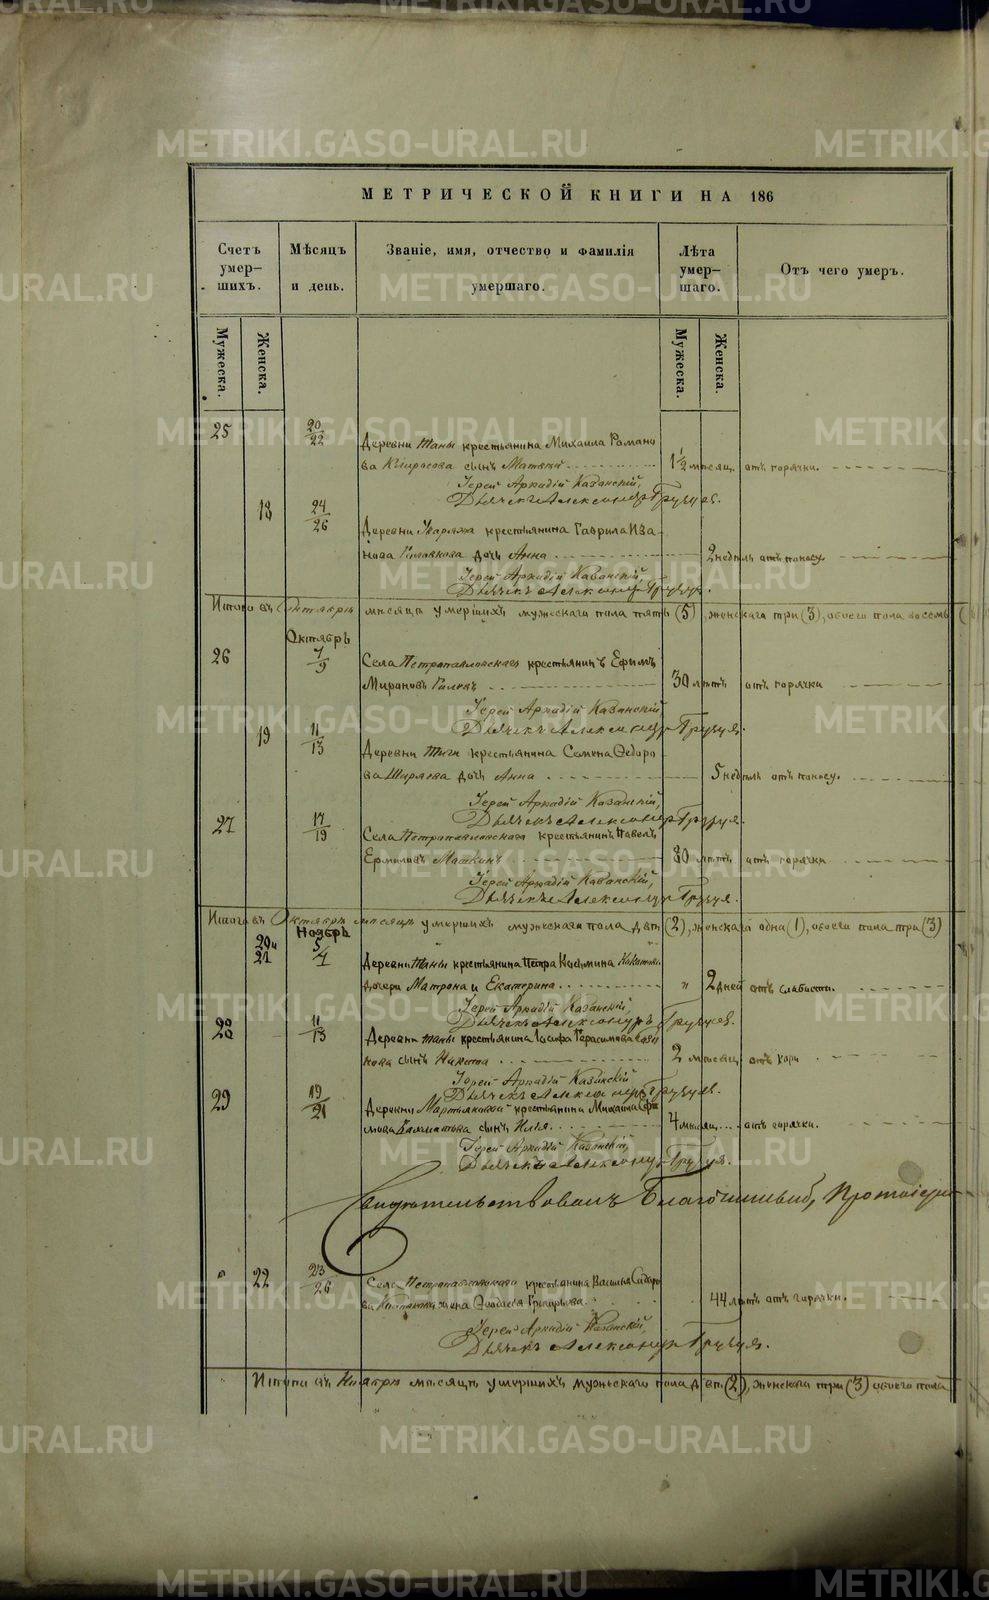 МЕТРИЧЕСКОЙ КНИГИ НА 186
Счетъ умер-шихъ.
Мѣсяцъ и день.
Званіе, имя, отчество и фамилія умершаго.
Лѣта умер-шаго.
Отъ чего умеръ.
Мужеска.
Женска.
Мужеска.
Женска.
25 20/22 Деревни Таны крестьянина Михаила Романо
ва сынъ Матвей 1 1/2 мѣсяц. отъ горячки.
Іерей Аркадій Казанскій,
Дьячекъ Александр
18 24/26 Деревни крестьянина Гаврила Ива
нова дочь Анна 2 недѣль отъ поносу.
Іерей Аркадій Казанскій,
Дьячекъ Александр
Итого въ Сентябрѣ мѣсяцѣ умершихъ мужескаго пола пять (5), женскаго три (3), обоего пола восемь
Октябрь
26 7/9 Села Петропавловскаго крестьянинъ Ефимъ
Мироновъ 30 лѣтъ отъ горячки
Іерей Аркадій Казанскій
Дьячекъ Александр
19 11/13 Деревни крестьянина Семена Ѳедоро
ва Ширяева дочь Анна 5 недѣль отъ поносу.
Іерей Аркадій Казанскій,
Дьячекъ Александр
27 17/19 Села Петропавловскаго крестьянинъ Павелъ
Ермиловъ 80 лѣтъ отъ горячки
Іерей Аркадій Казанскій,
Дьячекъ Александр
Итого въ Октябрѣ мѣсяцѣ умершихъ мужескаго пола два (2), женскаго одна (1), обоего пола три (3)
Ноябрь
20 и 21 5/7 Деревни Таны крестьянина Петра Космина
дочери Матрона и Екатерина " 2 дней отъ слабости.
Іерей Аркадій Казанскій
Дьячекъ Александръ
28 11/13 Деревни Таны крестьянина Іосифа Герасимова
нова сынъ Никита 2 мѣсяц. отъ кори
Іерей Аркадій Казанскій
Дьячекъ Александр
29 19/21 Деревни крестьянина Михаила
сынъ Илья. 4 мѣсяц. отъ горячки.
Іерей Аркадій Казанскій,
Дьячекъ Александр
Свидѣтельствовалъ Благочинный, Протоіерей
22 23/26 Села Петропавловскаго крестьянина Василья Сидоро
ва жена Григорьева. 44 лѣтъ отъ горячки.
Іерей Аркадій Казанскій,
Дьячекъ Александр
Итого въ Ноябрѣ мѣсяцѣ умершихъ мужескаго пола два (2), женскаго три (3) обоего пола
METRIKI.GASO-URAL.RU